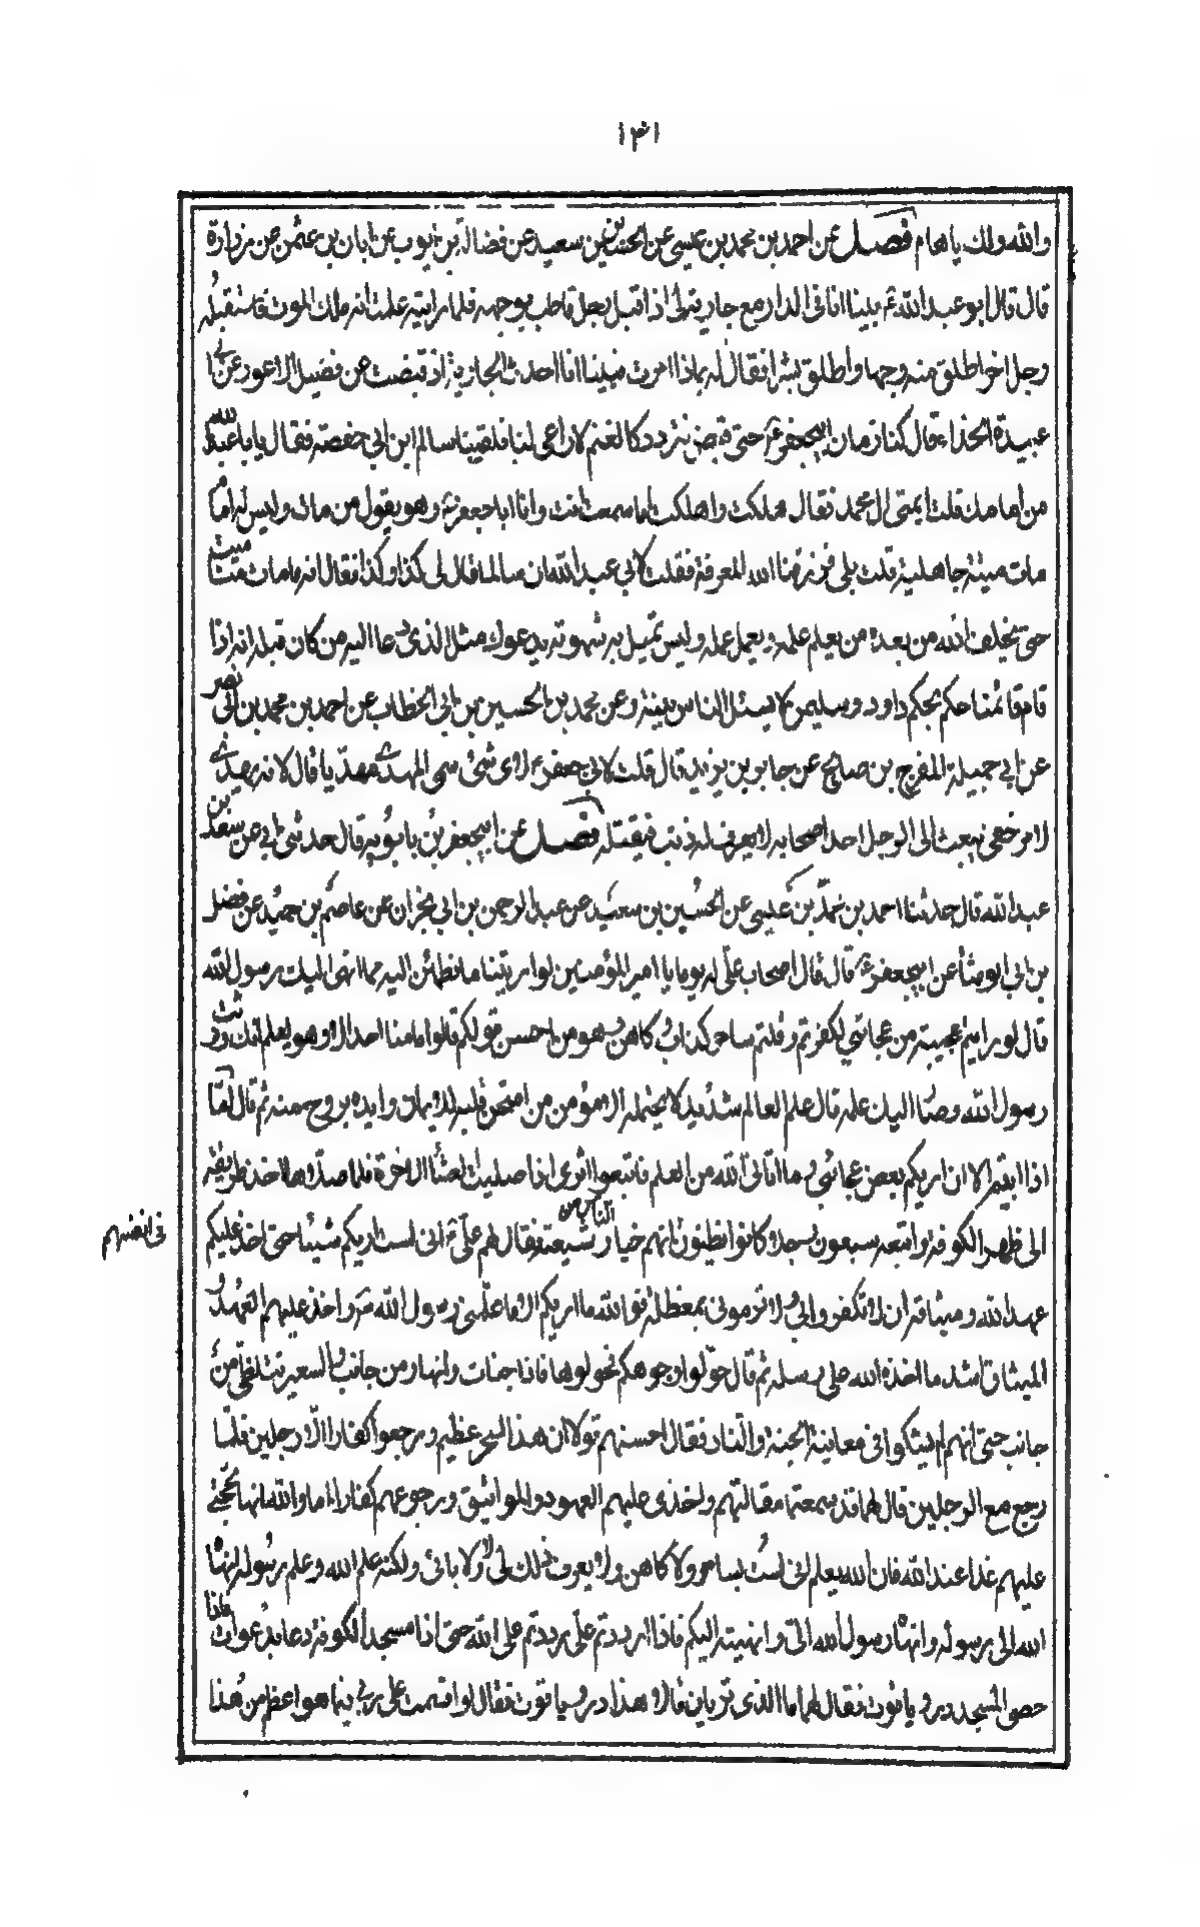 ١٣١
والله ولك ياهام فصل عن احمد بن محمد بن عيسى عن الحسين بن سعيد عن فضالة بن ايوب عن ابان بن عثمن عن زرارة
قال قال ابو عبد الله ع بينا انا فى الدار مع جارية لى اذ اقبل رجل قاطب بوجهه فلما رايته علمت انه ملك الموت فاستقبله
رجل اخر اطلق منه وجها واطلق بشرا فقال له بماذا امرت فبينا انا احدث الجارية اذ قبضت عن فضيل الاعور عن ابى
عبيدة الحذاء قال كنا زمان ابيجعفر ع حتى قبض نتردد كالغنم لا راعى لنا فلقينا سالم ابن ابى حفصة فقال يابا عبيدة
من امامك قلت ايمتى ال محمد فقال هلكت واهلكت اما سمعت انت وانا ابا جعفر ع وهو يقول من مات وليس له امام
مات ميتة جاهلية قلت بلى فرزقنا الله المعرفة فقلت لابي عبد الله ان سالما قال لى كذا وكذا فقال انه ما مات منا ميت
حتى يخلف الله من بعده من يعلم علمه ويعمل عمله وليس تميل به شهوته يدعو مثل الذى دعا اليه من كان قبله انه اذا
قام قائمنا حكم بحكم داود وسليمن لا يسئل الناس بينة وعن محمد بن الحسين بن ابي الخطاب عن احمد بن محمد بن ابى نصر
عن ابي جميلة المفرج بن صالح عن جابر بن يزيد قال قلت لابي جعفر ع لاى شئ سمى المهدى مهديا قال لانه يهدى
لامر خفى يبعث الى الرجل احد اصحابه لا يعرف له ذنب فيقتله فصل عن ابيجعفر بن بابويه قال حدثنى ابي عن سعد بن
عبد الله قال حدثنا احمد بن محمد بن عيسى عن الحسين بن سعيد عن عبد الرحمن بن ابي نجران عن عاصم بن حميد عن فضل
بن ابي عن ابيجعفر ع قال قال اصحاب على له يوما يا امير المؤمنين لو اريتنا ما نطمئن اليه مما انهى اليك رسول الله
قال لو رايتم عجيبة من عجائبي لكفرتم وقلتم ساحر كذاب وكاهن وهو من احسن قولكم قالوا ما منا احد الا وهو يعلم انك ورثت
رسول الله وصار اليك علمه قال علم العالم شديد لا يحتمله الا مؤمن من امتحن قلبه للايمان وايده بروح منه ثم قال اما
اذا ابيتم الا ان اريكم بعض عجائبى وما اتانى الله من العلم فاتبعوا اثرى اذا صليت العشاء الاخرة فلما صلاها اخذ طريقه
الى ظهر الكوفة واتبعه سبعون رجلا كانوا يظنون انهم خيار الناس من شيعته فقال لهم على ع انى لست اريكم شيئا حتى اخذ عليكم
فى انفسهم
عهد الله وميثاقه ان لا تكفروا بي ولا ترمونى بمعظلة فوالله ما اريكم الا ما علمنى رسول الله ص واخذ عليهم العهد و
الميثاق اشد ما اخذه الله على رسله ثم قال حولوا وجوهكم نحو لوها فاذا جنات وانهار من جانب والسعير تتلظى من
جانب حتى انهم لم يشكوا فى معاينة الجنة والنار فقال احسنهم قولا ان هذا السحر عظيم ورجعوا كفارا الا رجلين فلما
رجع مع الرجلين قال لهما قد سمعتما مقالتهم واخذى عليهم العهود والمواثيق ورجوعهم كفارا اما والله انها لحجتى
عليهم غدا عند الله فان الله يعلم انى لست بساحر ولا كاهن ولا يعرف ذلك لى ولا بائى ولكنه علم الله وعلم رسوله انهاه
الله الى رسوله وانهاه رسول الله الى وانهيته اليكم فاذا رددتم على رددتم على الله حتى اذا مسجد الكوفة دعا بدعوات فاذا
حصى المسجد در وياقوت فقال لهما ما الذى تريان قالا هذا در وياقوت فقال لو اقسمت على ربي فيما هو اعظم من هذا